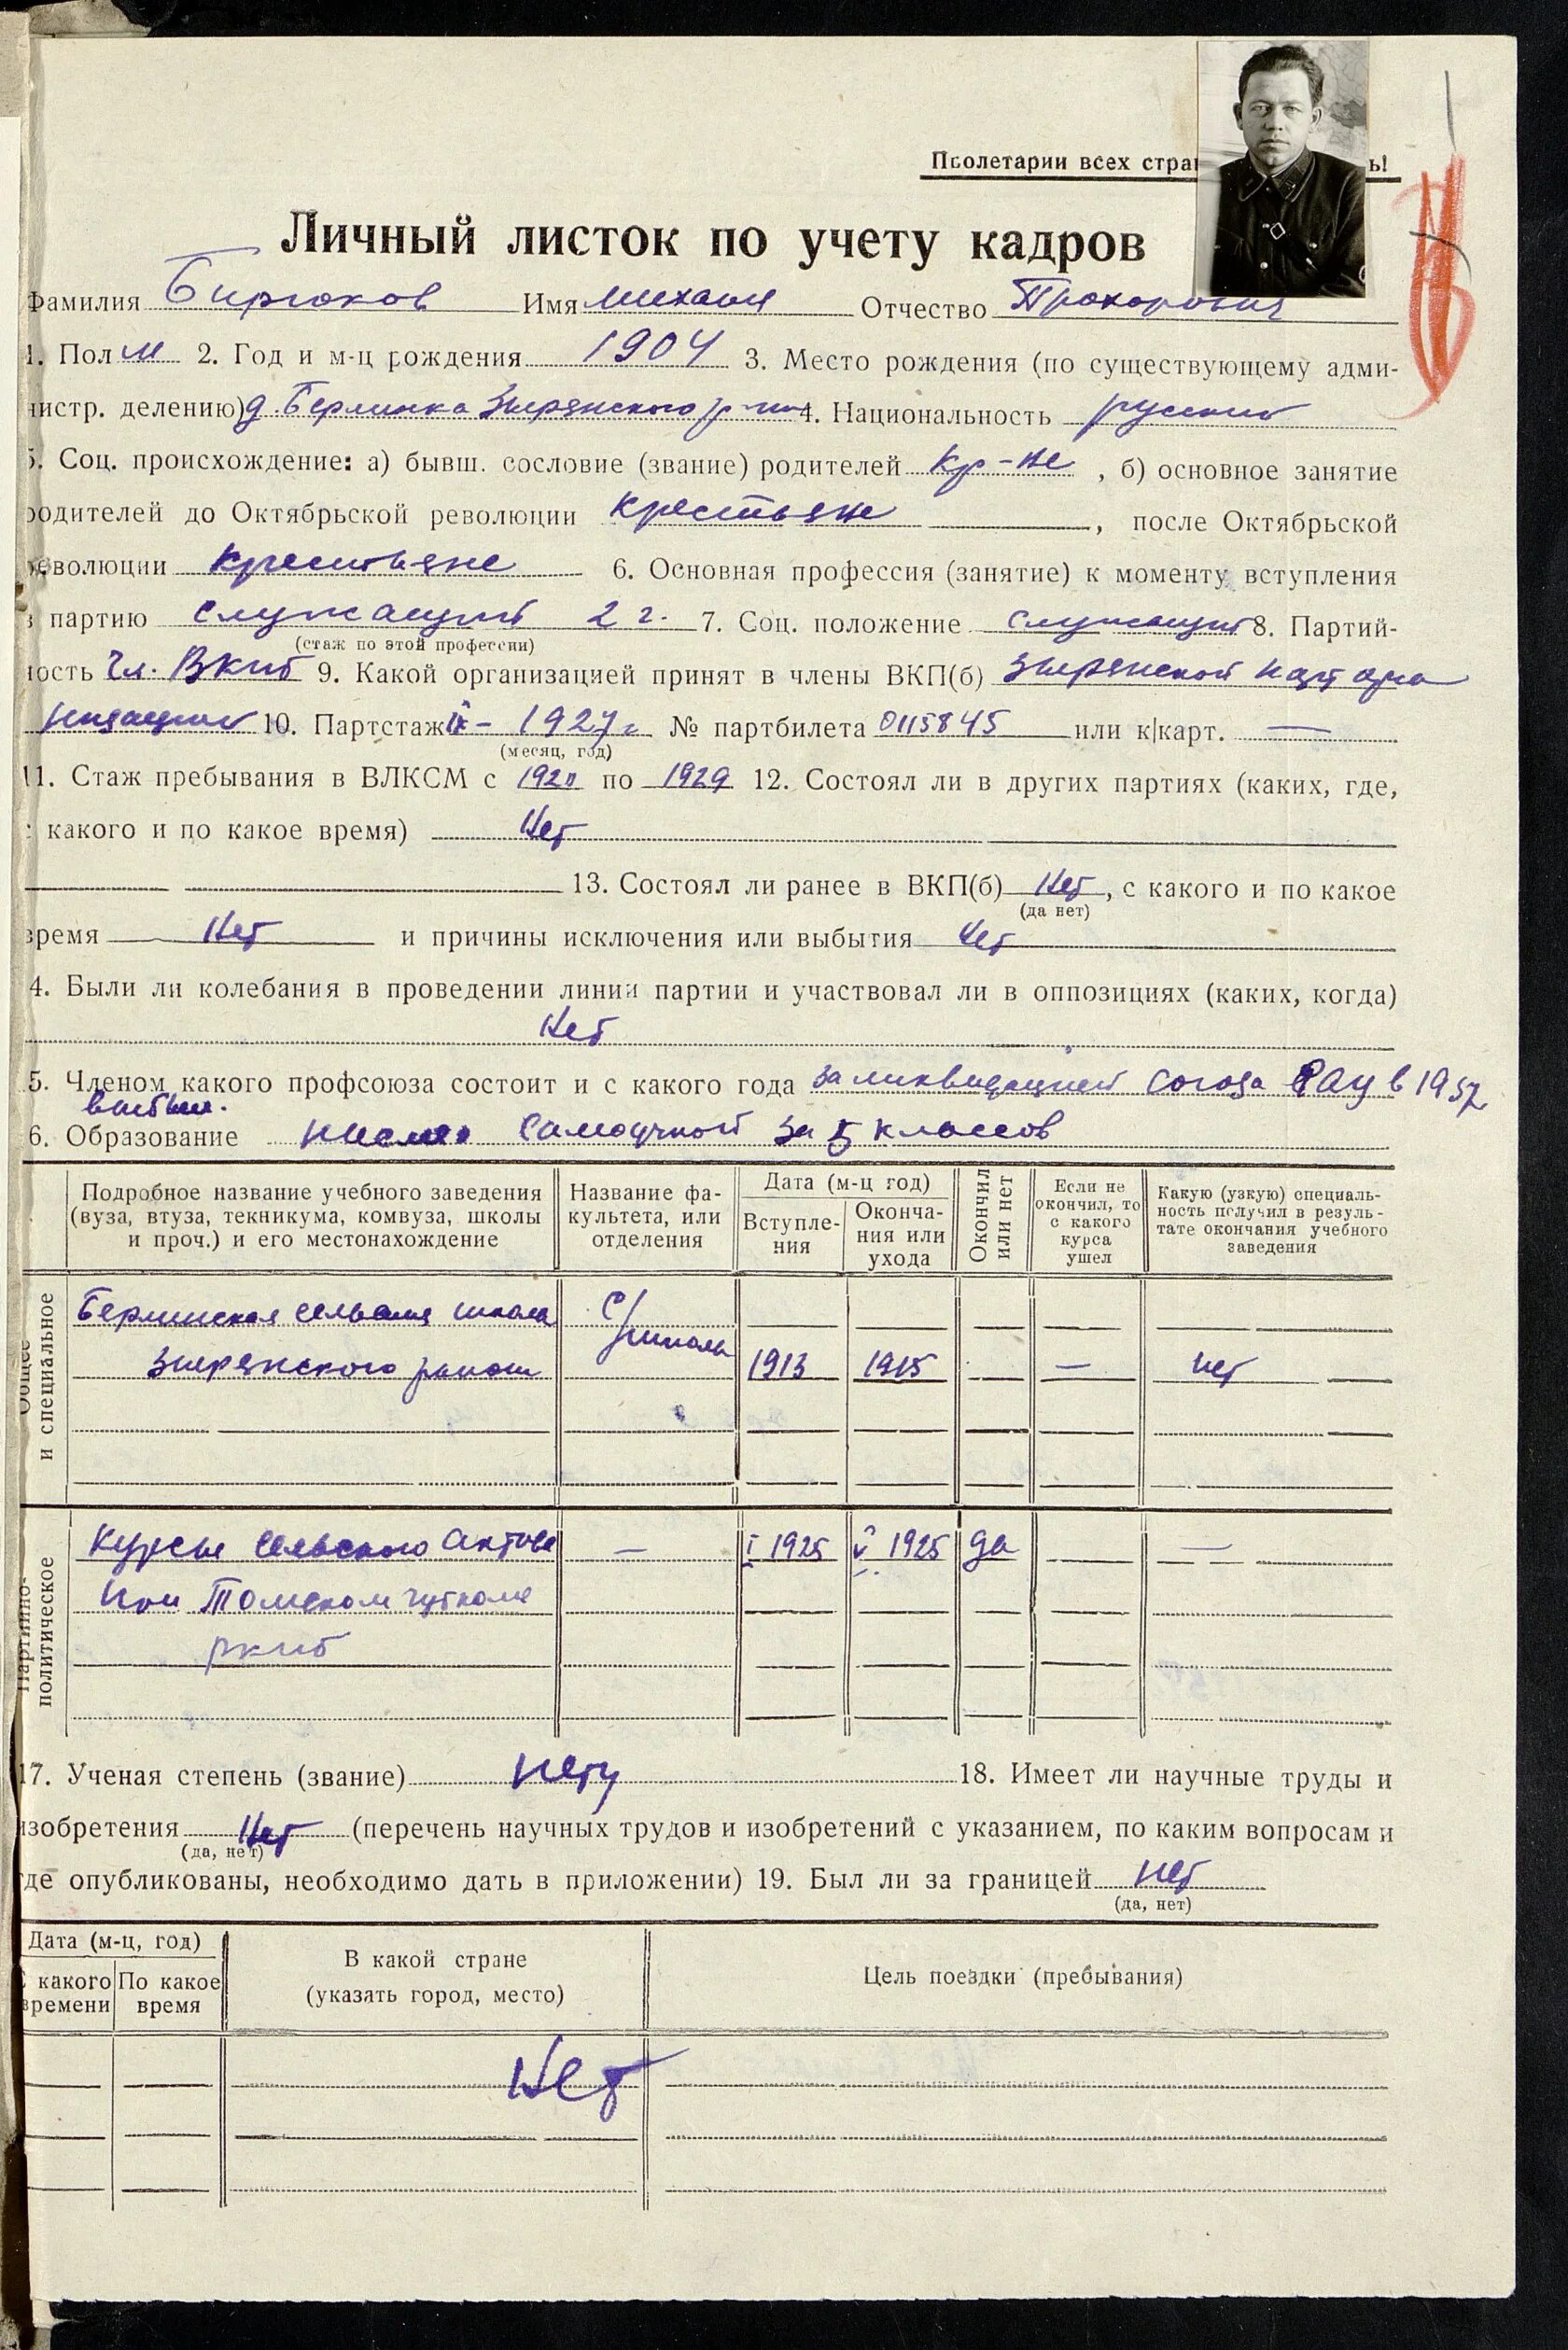 Пролетарии всех стра ь!
Личный листок по учету кадров
Фамилия Бирюков Имя Михаил Отчество Прохорович
1. Пол м 2. Год и м-ц рождения 1904 3. Место рождения (по существующему адми-
нистр. делению) д. Берлинка Зырянского р-на 4. Национальность русский
5. Соц. происхождение: а) бывш. сословие (звание) родителей кр-не, б) основное занятие
родителей до Октябрьской революции крестьяне, после Октябрьской
революции крестьяне 6. Основная профессия (занятие) к моменту вступления
в партию служащий 2 г. 7. Соц. положение служащий 8. Партий-
(стаж по этой профессии)
ность чл. ВКПб 9. Какой организацией принят в члены ВКП(б) Зырянской парт орга
низацией 10. Партстаж - 1927 г № партбилета 0115845 или к|карт. —
(месяц, год)
11. Стаж пребывания в ВЛКСМ с по 1929 12. Состоял ли в других партиях (каких, где,
с какого и по какое время) Нет
13. Состоял ли ранее в ВКП(б) Нет, с какого и по какое
(да нет)
время Нет и причины исключения или выбытия Нет
4. Были ли колебания в проведении линии партии и участвовал ли в оппозициях (каких, когда)
Нет
5. Членом какого профсоюза состоит и с какого года за ликвидацией союза в 1937
выбыл.
6. Образование самоучкой за 5 классов
Подробное название учебного заведения (вуза, втуза, текникума, комвуза, школы и проч.) и его местонахождение
Название фа-культета, или отделения
Дата (м-ц год)
Вступле-ния
Оконча-ния или ухода
Окончил или нет
Если не окончил, то с какого курса ушел
Какую (узкую) специаль-ность получил в резуль-тате окончания учебного заведения
Общее и специальное
Берлинская сельская школа С/
Зырянского района школа 1913 1915 — нет
Партийно-политическое
Курсы сельского актива — I 1925 V 1925 да —
при Томском губкоме
РКПб
17. Ученая степень (звание) нету 18. Имеет ли научные труды и
изобретения Нет (перечень научных трудов и изобретений с указанием, по каким вопросам и
(да, нет)
где опубликованы, необходимо дать в приложении) 19. Был ли за границей нет
(да, нет)
Дата (м-ц, год)
С какого времени
По какое время
В какой стране
(указать город, место)
Цель поездки (пребывания)
Нет